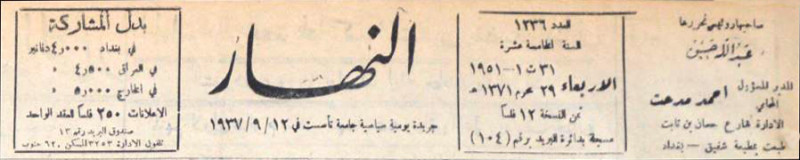 صاحبها ورئيس تحريرها
عبد الله حسين
المدير المسؤول
المحامي
احمد مدحت
الادارة شارع حسان بن ثابت
طبعت بمطبعة شفيق - بغداد
العدد ١٢٣٦
السنة الخامسة عشرة
٣١ ت ١ - ١٩٥١
الاربعاء ٢٩ محرم ١٣٧١ هـ
ثمن النسخة ١٢ فلسا
مسجلة بدائرة البريد برقم (١٠٤)
النهار
جريدة يومية سياسية جامعة تأسست في ١٢/٩/١٩٣٧
بدل المشاركة
في بغداد ٤٫٠٠٠ دنانير
في العراق ٤٫٥٠٠ »
في الخارج ٥٫٠٠٠ »
الاعلانات ٢٥٠ فلسا للعقد الواحد
صندوق البريد رقم ١٣
تلفون الادارة ٣٢٥٣ المسكن ٦٢٠ جنوب